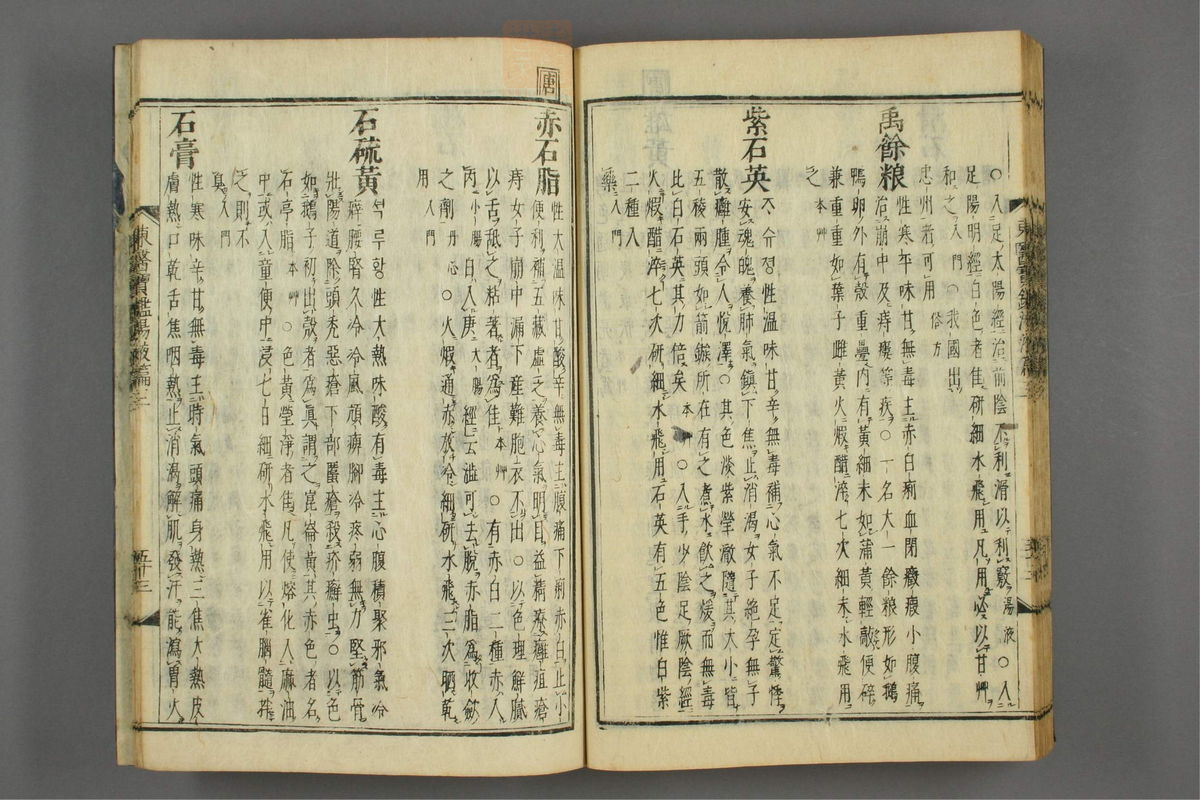 ○入足太陽經治前陰不利滑以利竅湯液○入
足陽明經白色者佳研細水飛用凡用必以甘艸
和之入門○我國出
忠州者可用俗方
禹餘粮
性寒平味甘無毒主赤白痢血閉癥瘕小腹痛
治崩中及痔瘻等疾○一名大一餘粮形如鵝
鴨卵外有殼重疊內有黃細末如蒲黃輕敲便碎
兼重重如葉子雌黃火煆醋淬七次細末水飛用
之本艸
紫石英
ᄌᆞ슈졍性溫味甘辛無毒補心氣不足定驚悸
安魂魄養肺氣鎭下焦止消渴女子絶孕無子
散癰腫令人悅澤○其色淡紫瑩澈隨其大小皆
五稜兩頭如箭鏃所在有之煮水飮之煖而無毒
比白石英其力倍矣本艸○入手少陰足厥陰經
火煆醋淬七次研細水飛用石英有五色惟白紫
二種入
藥入門
唐
赤石脂
性大溫味甘酸辛無毒主腹痛下痢赤白止小
便利補五藏虛乏養心氣明目益精療癰疽瘡
痔女子崩中漏下產難胞衣不出○以色理鮮膩
以舌舐之粘著者爲佳本艸○有赤白二種赤入
丙小腸白入庚大腸經云澁可去脫赤脂爲收斂
之劑丹心○火煆通赤放冷細研水飛三次晒乾
用入門
石硫黃
셕류황性大熱味酸有毒主心腹積聚邪氣冷
癖腰腎久冷冷風頑痺脚冷疼弱無力堅筋骨
壯陽道除頭禿惡瘡下部䘌瘡殺疥癬虫○以色
如鵝子初出殼者爲眞謂之崑崙黃其赤色者名
石亭脂本艸○色黃瑩淨者隹凡使熔化入麻油
中或入童便中浸七日細研水飛用以雀腦髓拌
之則不
臭入門
石膏
性寒味辛甘無毒主時氣頭痛身熱三焦大熱皮
膚熱口乾舌焦咽熱止消渴解肌發汗能瀉胃火
東醫寶鑑湯液篇三
五十三